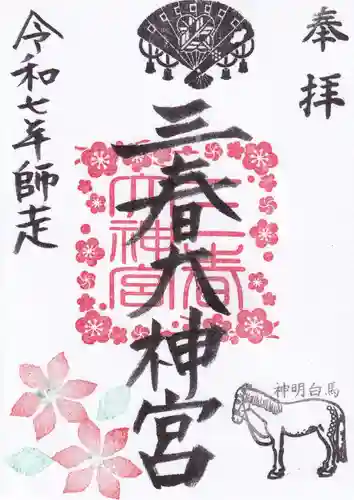 奉拝
三春大神宮
三春大神宮
令和七年師走
神明白馬